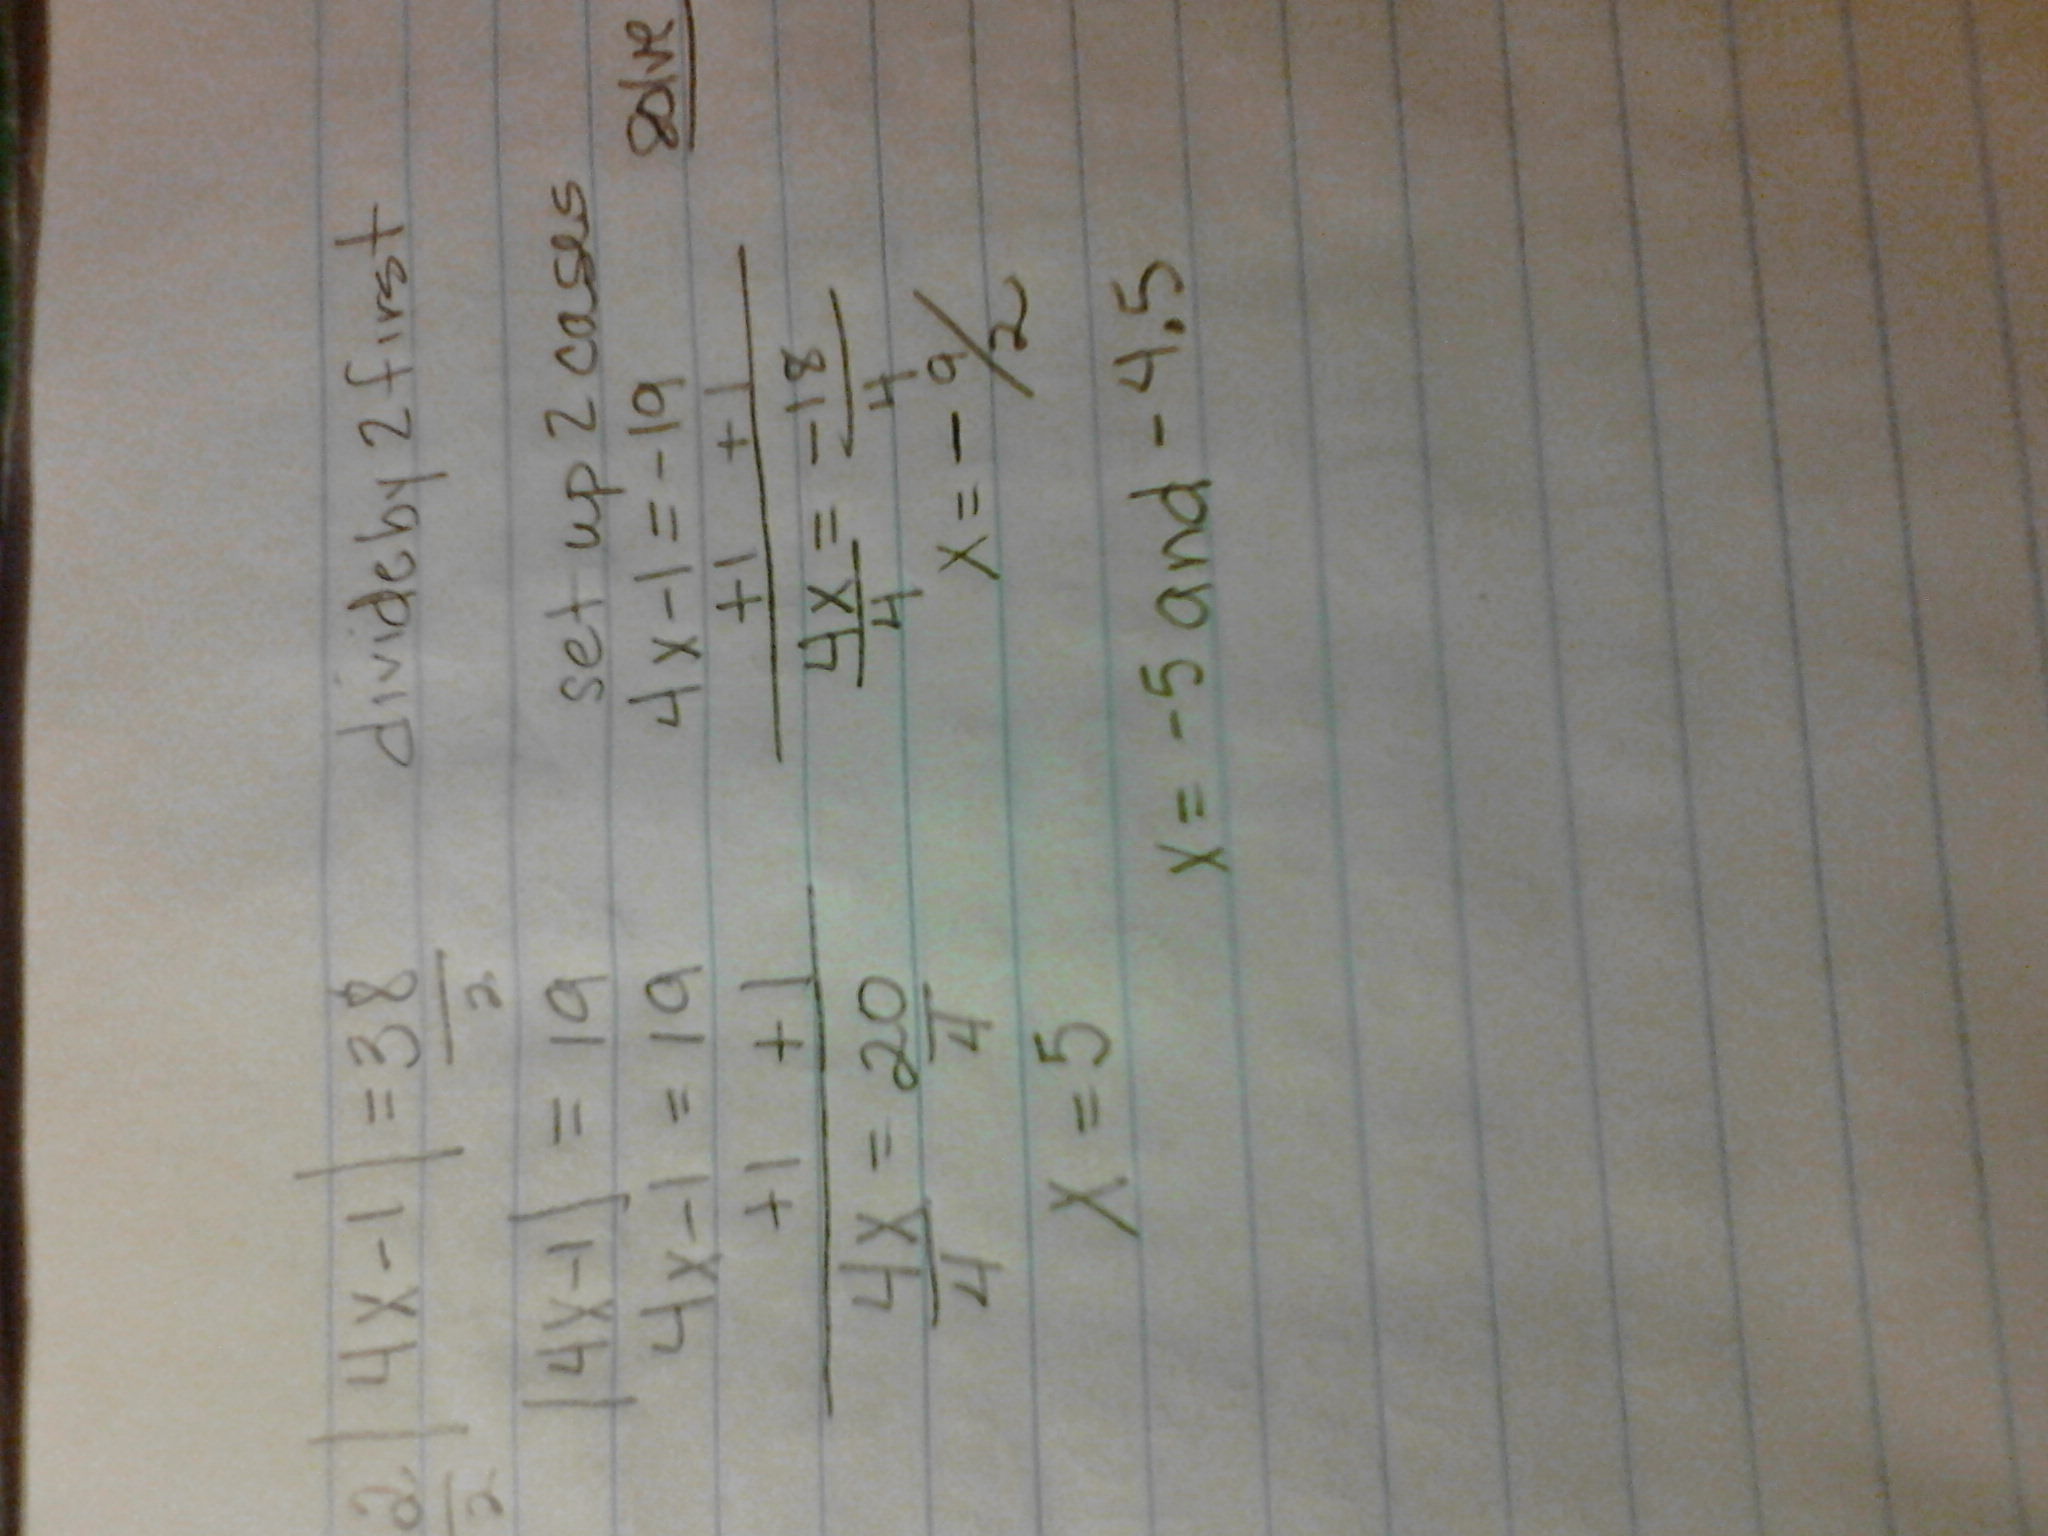 2|4x-1| = 38 divide by 2 first
2 2
|4x-1| = 19 set up 2 cases
4x-1 = 19 4x-1=-19 solve
+1 +1 +1 +1
4x = 20 4x = -18
4 4 4 4
x = 5 x = -9/2
x = -5 and -4.5